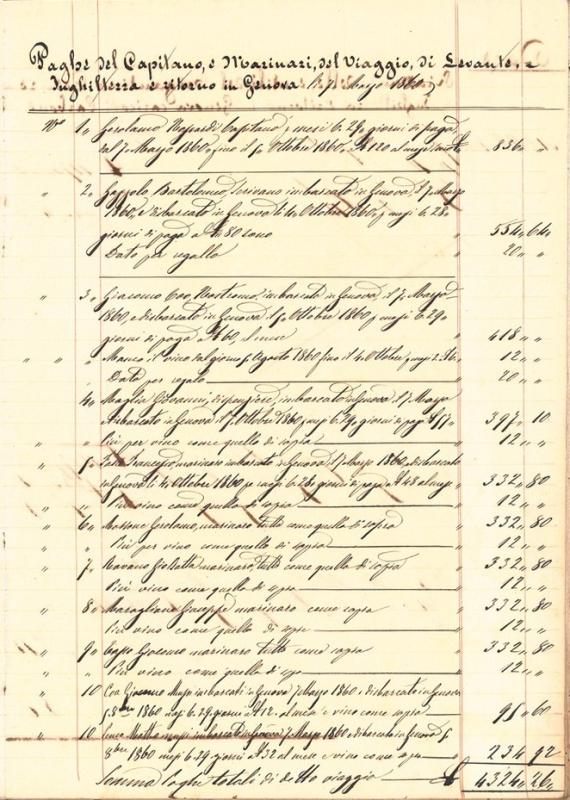 Paghe del Capitano, e Marinari, del Viaggio, di Levante, e
Inghilterra e ritorno in Genova li 7 Marzo 1860
N° 1„ Gerolamo Capitano p mesi 6. 29 giorni di paga
dal 7 Marzo 1860 fino il 5 Ottobre 1860 a 120 al mese 836 „
„ 2„ Bartolomeo, Scrivano imbarcato in Genova, il 7 Marzo
1860, e disbarcato in Genova li 4 Ottobre 1860, p mesi 6. 28
giorni di paga a 80 sono „ 554„ 64
Dato per regallo „ 20„ „
„ 3„ Giacomo Nostromo, imbarcato in Genova, il 7 Marzo
1860, e disbarcato in Genova il 5 Ottobre 1860 p mesi 6. 29
giorni di paga a 60, al mese „ 418„ „
„ „ „ il vino dal giorno 5 Agosto 1860 fino il 4 Ottobre p mesi 2 „ 12„ „
„ Dato per regalo „ 20„ „
4„ Maglia Giovanni, dispensiere, imbarcato in Genova il 7 Marzo
disbarcato in Genova il 5 Ottobre 1860 p mesi 6. 29 giorni di paga a 57 „ 397„ 10
„ „ Più per vino come quello di sopra „ 12„ „
„ 5„ Francesco, marinaro imbarcato in Genova il 7 Marzo 1860, e disbarcato
in Genova li 4 Ottobre 1860 p mesi 6. 28 giorni di paga a 48 al mese „ 332„ 80
„ „ Più vino come quello di sopra „ 12„ „
„ 6„ Gerolamo, marinaro tutto come quello di sopra „ 332„ 80
„ Più per vino come quello di sopra „ 12„ „
„ 7„ marinaro, tutto come quello di sopra „ 332„ 80
Più vino come quello di sopra „ 12„ „
„ 8„ Maragliano Giuseppe marinaro come sopra „ 332„ 80
Più vino come quello di sopra „ 12„ „
„ 9„ Giacomo marinaro tutto come sopra „ 332„ 80
„ „ Più vino come quello di sopra „ 12„ „
„ 10 Giacomo imbarcato in Genova 7 Marzo 1860 e disbarcato in Genova
5. 8bre 1860 mesi 6. 29 giorni a 12 al mese e vino come sopra „ 95„ 60
„ 10 imbarcato in Genova 7 Marzo 1860 e disbarcato in Genova 5
8bre 1860 mesi 6. 29 giorni a 32 al mese e vino come sopra „ 234„ 92
Somma Paghe totali di detto viaggio 4324„ 26„